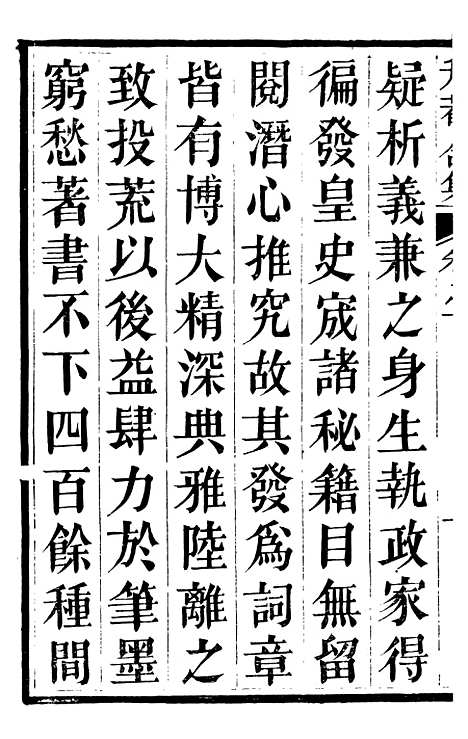 疑析義兼之身生執政家得
徧發皇史宬諸秘籍目無留
閱潛心推究故其發爲詞章
皆有博大精深典雅陸離之
致投荒以後益肆力於筆墨
窮愁著書不下四百餘種間